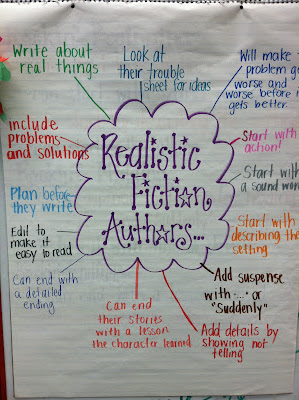 Realistic
Fiction
Authors...
Write about
real things
Look at
their trouble
sheet for ideas
Will make
problem g
worse and
worse before i
gets better.
Start with
action!
Start with
a sound wor
Start with
describing the
setting
Add suspense
with "..." or
"Suddenly"
Add details by
showing not
telling
Can end
their stories
with a lesson
the character learned
Can end with
a detailed
ending
Edit to
make it
easy to read
Plan before
they write
Include
problems
and solutions